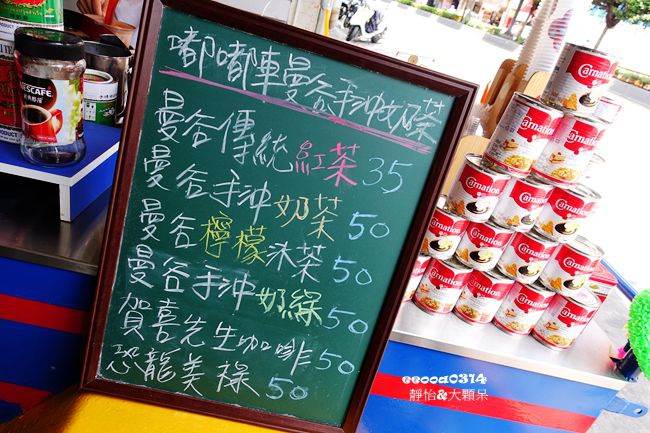 嘟嘟車曼谷手沖奶茶
曼谷傳統紅茶 35
曼谷手沖奶茶 50
曼谷檸檬沐茶 50
曼谷手沖奶綠 50
賀喜先生咖啡 50
恐龍美祿 50
NESCAFÉ
Carnation
Carnation
Carnation
Carnation
Carnation
Carnation
Carnation
Carnation
Carnation
Carnation
Carnation
Carnation
eeooa0314
靜怡&大顆呆